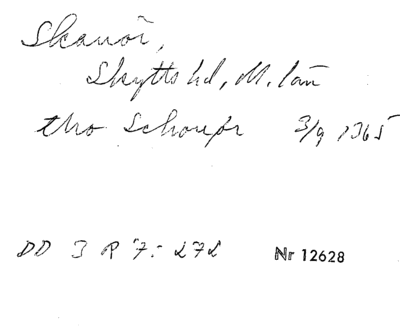 Skanör,
Skytts hd, M. län
tho Schonør 3/9 1365
DD 3 R 7: 272 Nr 12628